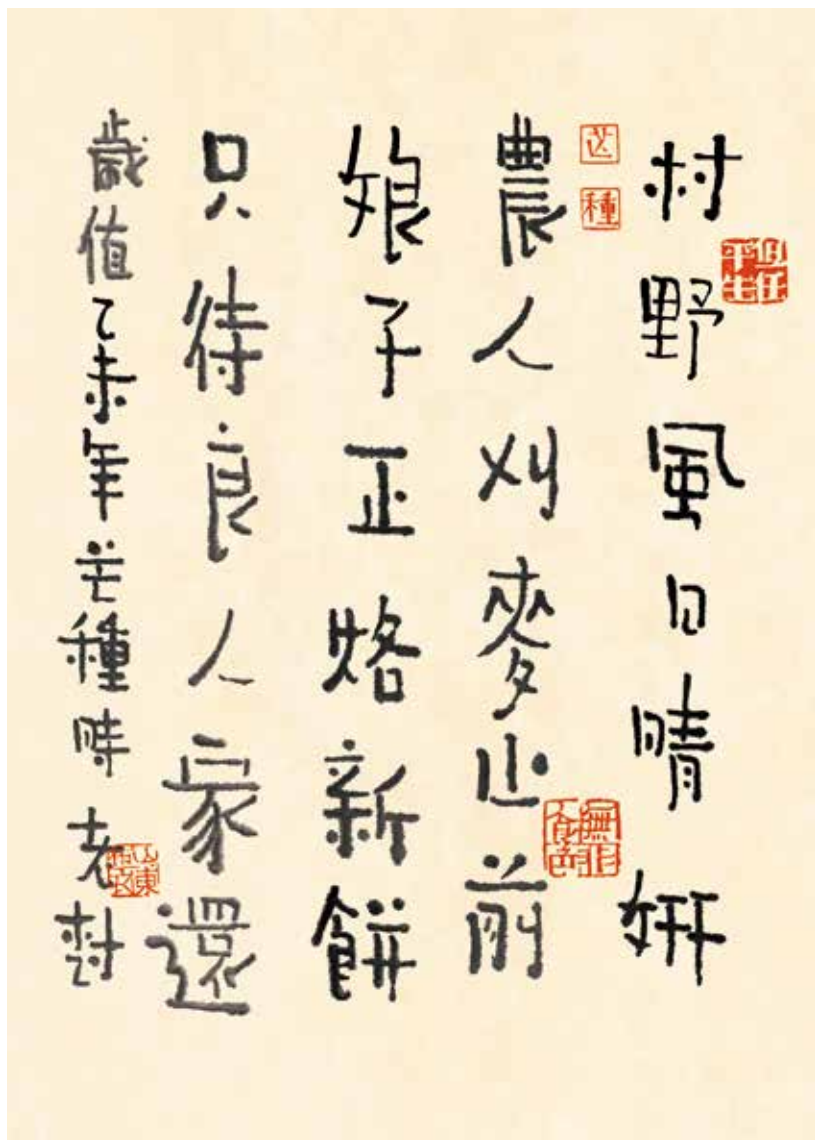 村野風日晴妍
芒種
農人刈麥山前
娘子正烙新餅
只待良人家還
歲值乙未年芒種時 老樹
無非食色